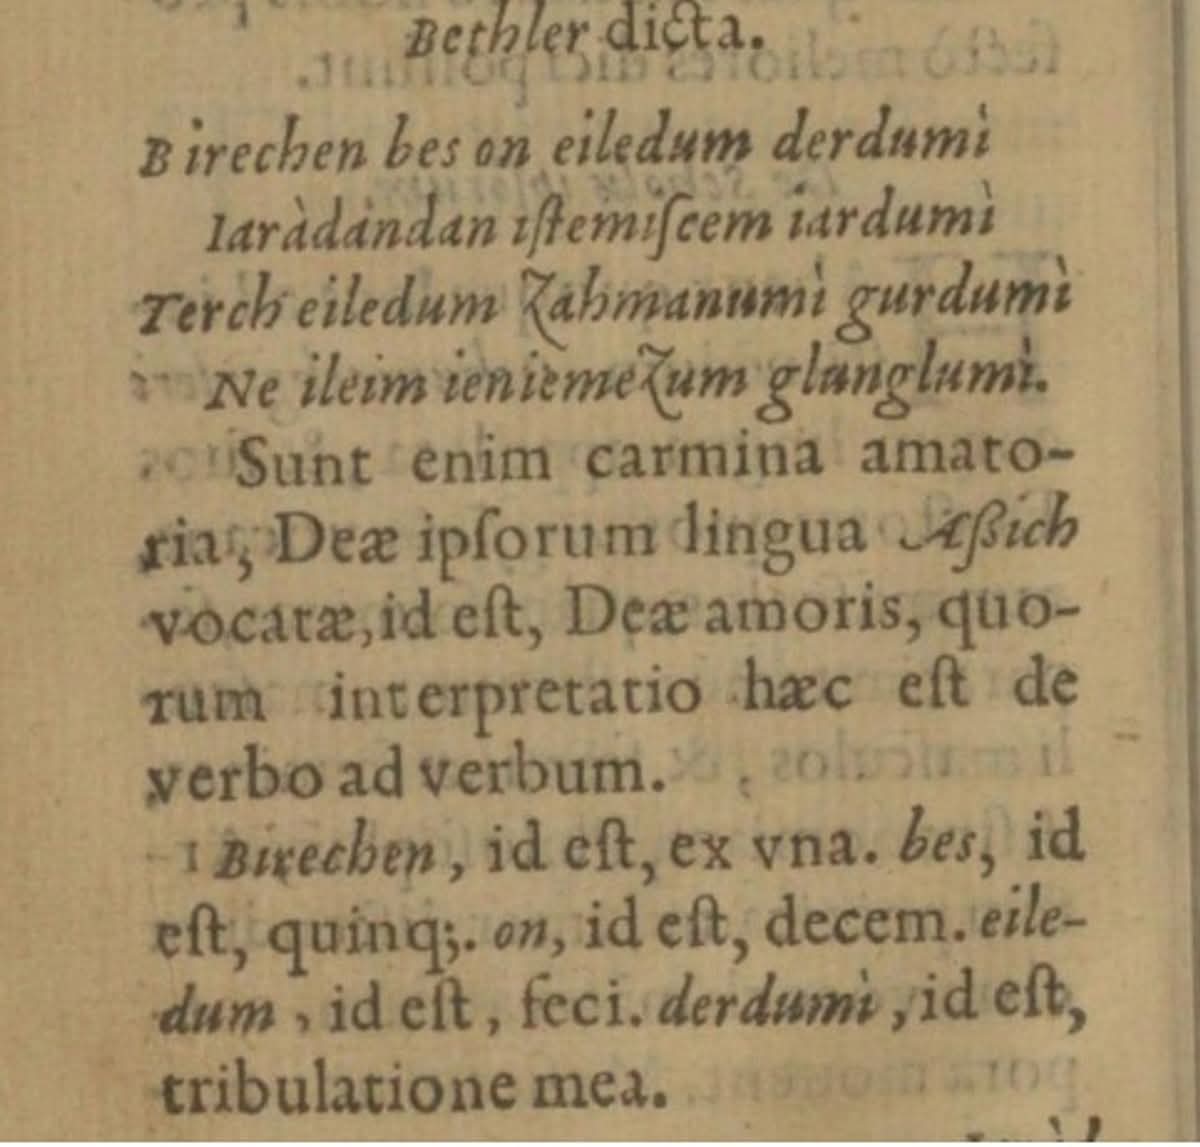 Bethler dicta.
Birechen bes on eiledum derdumì
Iaràdandan iſtemiſcem iardumì
Terch eiledum Zahmanumì gurdumì
Ne ileim ieniemeZum glunglumì.
Sunt enim carmina amato-
ria, Deæ ipſorum lingua Aßich
vocatæ, id eſt, Deæ amoris, quo-
rum interpretatio hæc eſt de
verbo ad verbum.
1 Birechen, id eſt, ex vna. bes, id
eſt, quinq;. on, id eſt, decem. eile-
dum, id eſt, feci. derdumì, id eſt,
tribulatione mea.